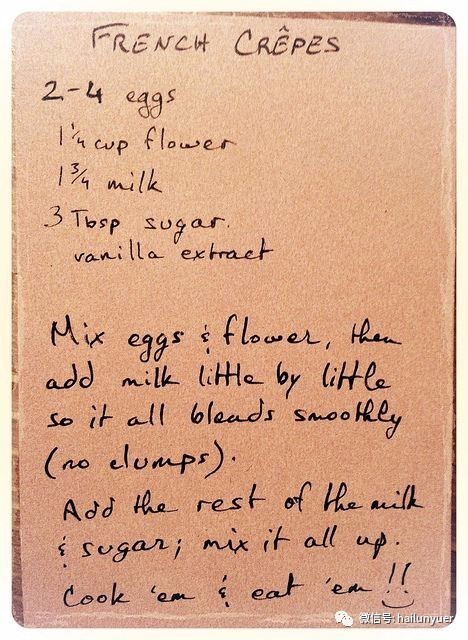 FRENCH CRÊPES
2-4 eggs
1¼ cup flower
1¾ milk
3 Tbsp sugar.
vanilla extract
Mix eggs & flower, then
add milk little by little
so it all blends smoothly
(no clumps).
Add the rest of the milk
& sugar; mix it all up.
Cook 'em & eat 'em!!
微信号: hailunyuer